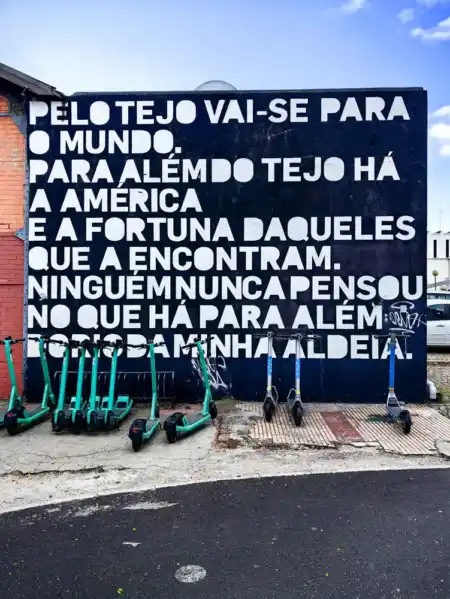 PELO TEJO VAI-SE PARA
O MUNDO.
PARA ALÉM DO TEJO HÁ
A AMÉRICA
E A FORTUNA DAQUELES
QUE A ENCONTRAM.
NINGUÉM NUNCA PENSOU
NO QUE HÁ PARA ALÉM
DO RIO DA MINHA ALDEIA.